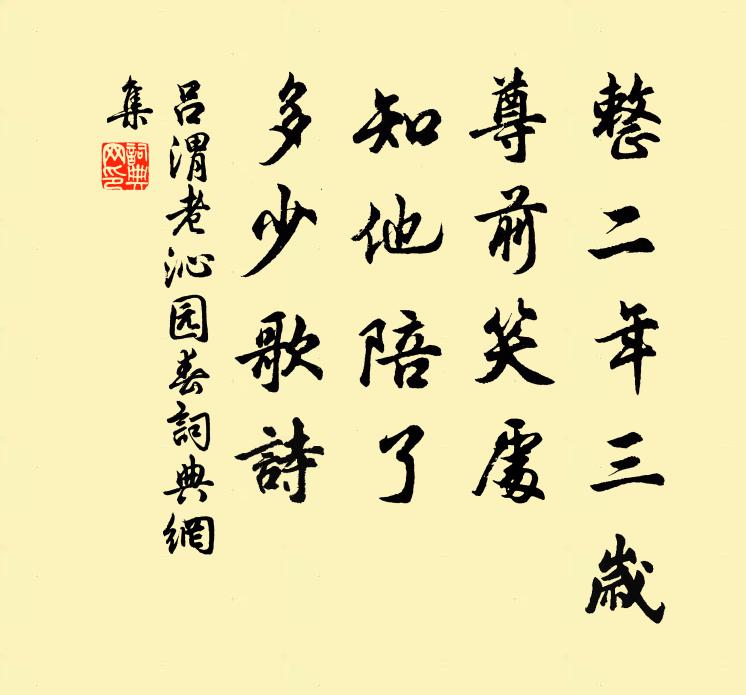 整二年三歲
尊前笑處
知他陪了
多少歌詩
吕渭老沁园春詞典網
集
詞典網印